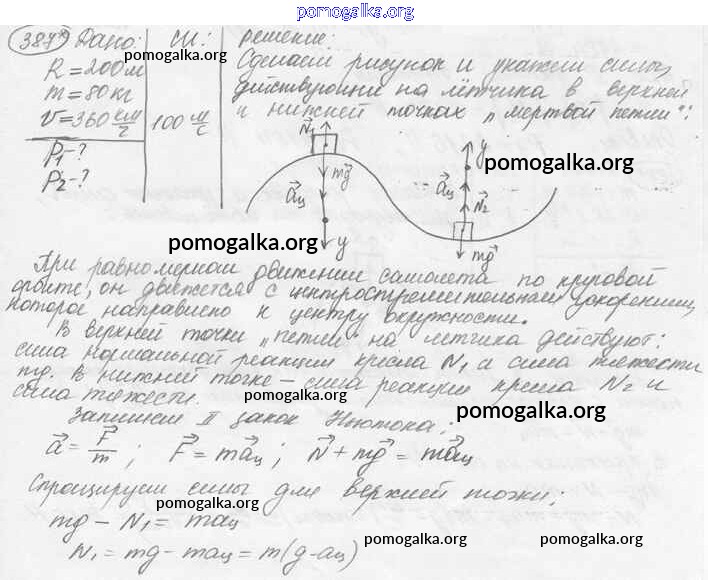 pomogalka.org
387* Дано: СИ: решение:
R=200м
m=80кг
v=360 км/ч 100 м/с
P₁-?
P₂-?
Сделаем рисунок и укажем силы,
действующие на лётчика в верхней
и нижней точках „мёртвой петли":
pomogalka.org
N₁
mg
aц
y
y
aц
N₂
mg
pomogalka.org
pomogalka.org
При равномерном движении самолёта по круговой
орбите, он движется с центростремительным ускорением,
которое направлено к центру окружности.
В верхней точки „петли" на лётчика действуют:
сила нормальной реакции кресла N₁ и сила тяжести
mg. В нижней точке – сила реакции кресла N₂ и
сила тяжести.
pomogalka.org
pomogalka.org
Запишем II закон Ньютона:
a⃗ = F⃗/m ; F⃗ = ma⃗ц ; N⃗ + mg⃗ = ma⃗ц
Спроецируем силы для верхней точки:
pomogalka.org
mg – N₁ = maц
N₁ = mg – maц = m(g-aц)
pomogalka.org
pomogalka.org